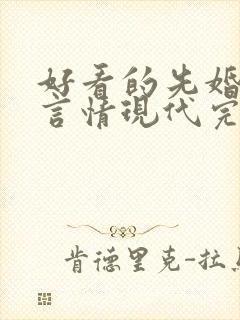 好看的先婚
言情现代完
肯德里克-拉